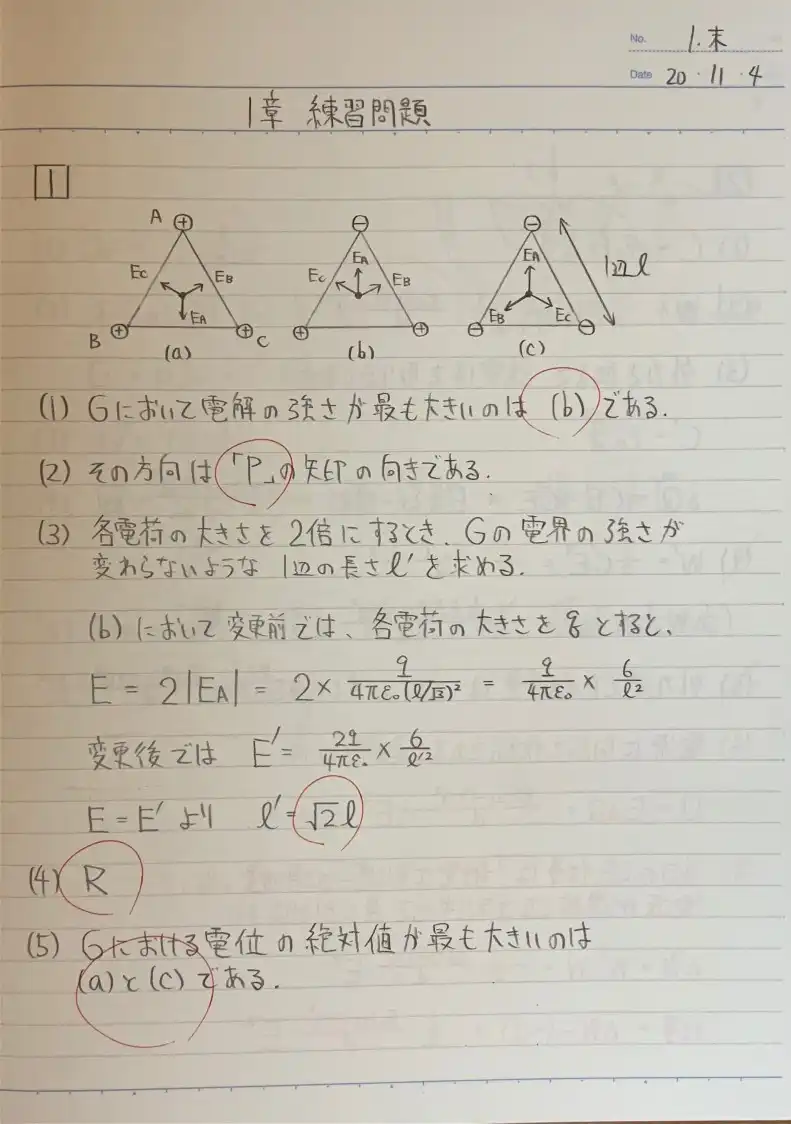 No. 1.末
Date 20・11・4
1章 練習問題
1
A ⊕ ⊖ ⊖
EC EB EA EC EA EB EA EB EC 1辺ℓ
B ⊕ ⊕ C ⊕ ⊕ ⊖ ⊖
(a) (b) (c)
(1) Gにおいて電解の強さが最も大きいのは (b) である.
(2) その方向は「P」の矢印の向きである.
(3) 各電荷の大きさを2倍にするとき、Gの電界の強さが
変わらないような 1辺の長さℓ'を求める.
(b)において変更前では、各電荷の大きさをqとすると、
E = 2|EA| = 2× q/4πε₀(ℓ/√3)² = q/4πε₀ × 6/ℓ²
変更後では E' = 2q/4πε₀ × 6/ℓ'²
E = E' より ℓ' = √2ℓ
(4) R
(5) Gにおける電位の絶対値が最も大きいのは
(a)と(c)である.